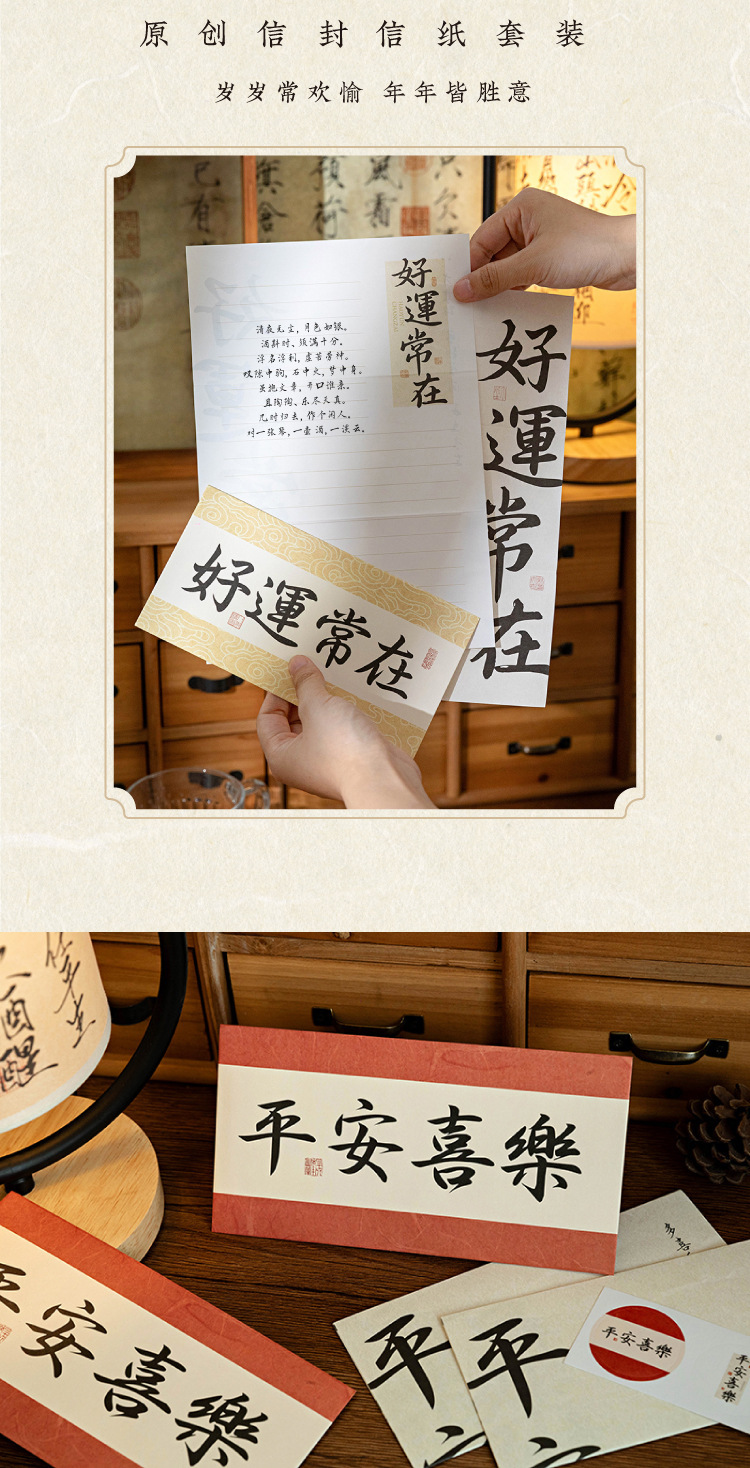 原创信封信纸套装
岁岁常欢愉 年年皆胜意
已有
預荷
風霜
只欠
好運常在
清夜无尘，月色如银。
酒斟时、须满十分。
浮名浮利，虚苦劳神。
叹隙中驹，石中火，梦中身。
虽抱文章，开口谁亲。
且陶陶、乐尽天真。
几时归去，作个闲人。
对一张琴，一壶酒，一溪云。
好運常在
好運常在
酒醒
平安喜樂
平安喜樂
多喜
平安
平安
平安喜樂
平安喜樂